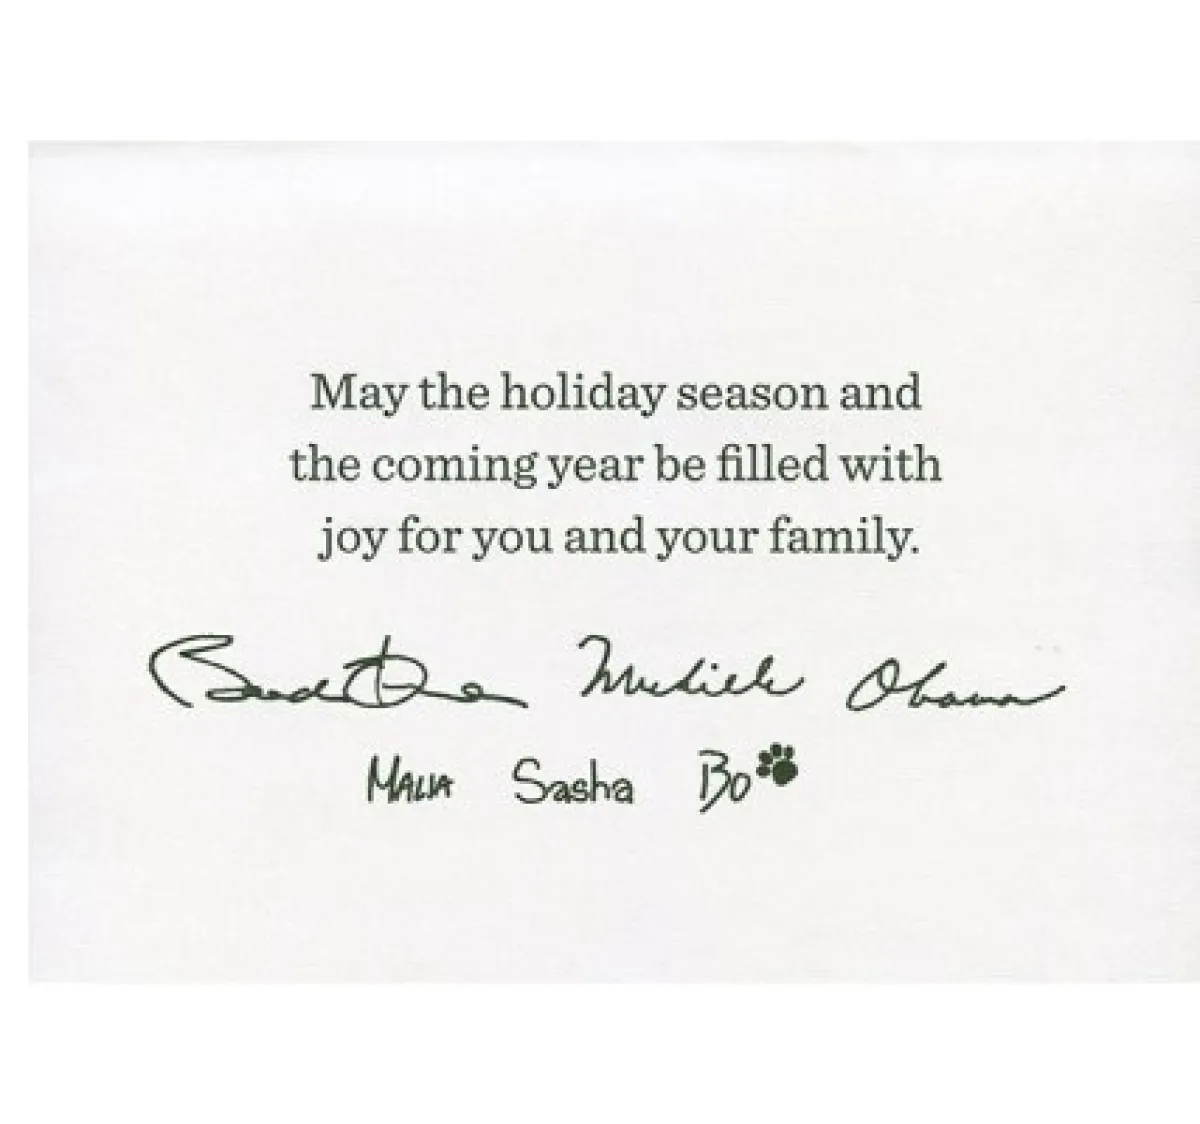 May the holiday season and
the coming year be filled with
joy for you and your family.
Barack Obama Michelle Obama
Malia Sasha Bo